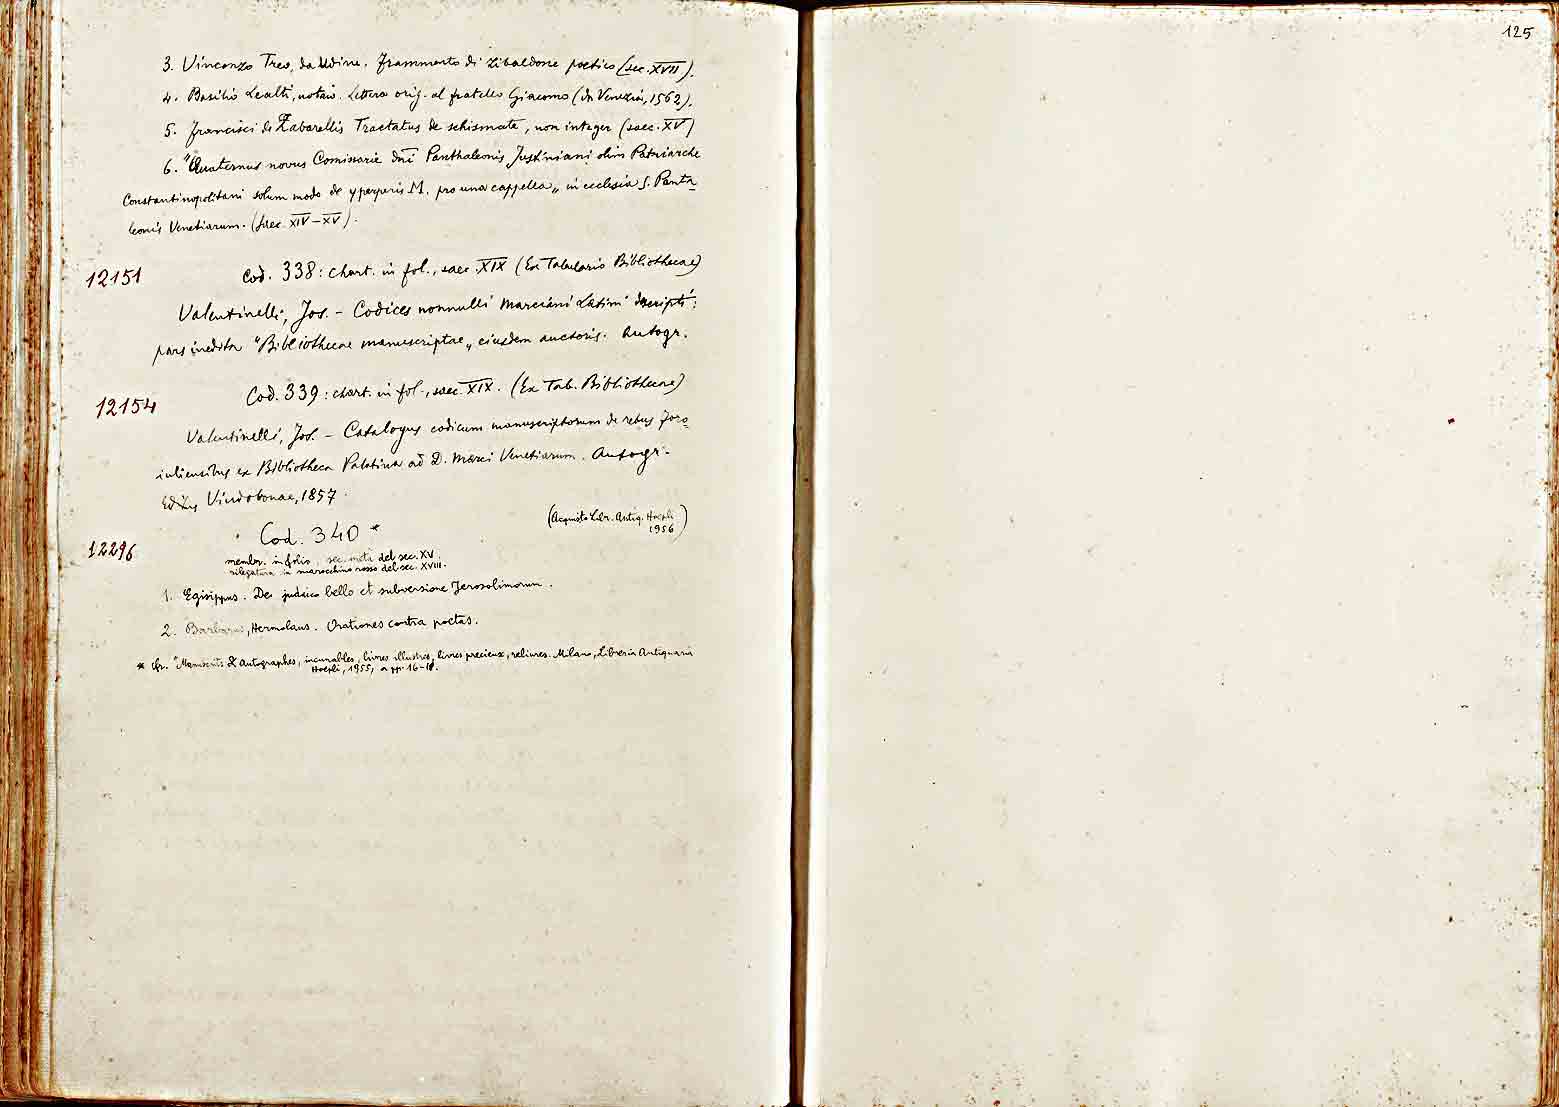 3. Vincenzo Treo, da Udine. Frammento di Zibaldone poetico (sec. XVII).
4. Basilio Lealti, notaio. Lettera orig. al fratello Giacomo (da Venezia, 1562).
5. Francisci de Zabarellis Tractatus de schismate, non integer (saec. XV)
6. "Quaternus novus Comissarie dnī Panthaleonis Justiniani olim Patriarche
Constantinopolitani solum modo de yperperis M. pro una cappella„ in ecclesia S. Panta-
leonis Venetiarum. (saec. XIV–XV).
12151
Cod. 338: chart. in fol., saec. XIX (Ex Tabulario Bibliothecae)
Valentinelli, Jos. – Codices nonnulli Marciani Latini descripti:
pars inedita "Bibliothecae manuscriptae„ eiusdem auctoris. Autogr.
12154
Cod. 339: chart. in fol., saec. XIX. (Ex Tab. Bibliothecae)
Valentinelli, Jos. – Catalogus codicum manuscriptorum de rebus Foro-
iuliensibus ex Bibliotheca Palatina ad D. Marci Venetiarum. Autogr.
Editus Vindobonae, 1857
(Acquisto Libr. Antiq. Hoepli
1956)
12296
Cod. 340 *
membr. in folio, sec. metà del sec. XV.
rilegatura in marocchino rosso del sec. XVIII.
1. Egisippus. De judaico bello et subversione Jerosolimorum.
2. Barbarus, Hermolaus. Orationes contra poetas.
* Cfr. "Manuscrits & autographes, incunables, livres illustres, livres precieux, reliures. Milano, Libreria Antiquaria
Hoepli, 1955, a pp. 16-18.
125